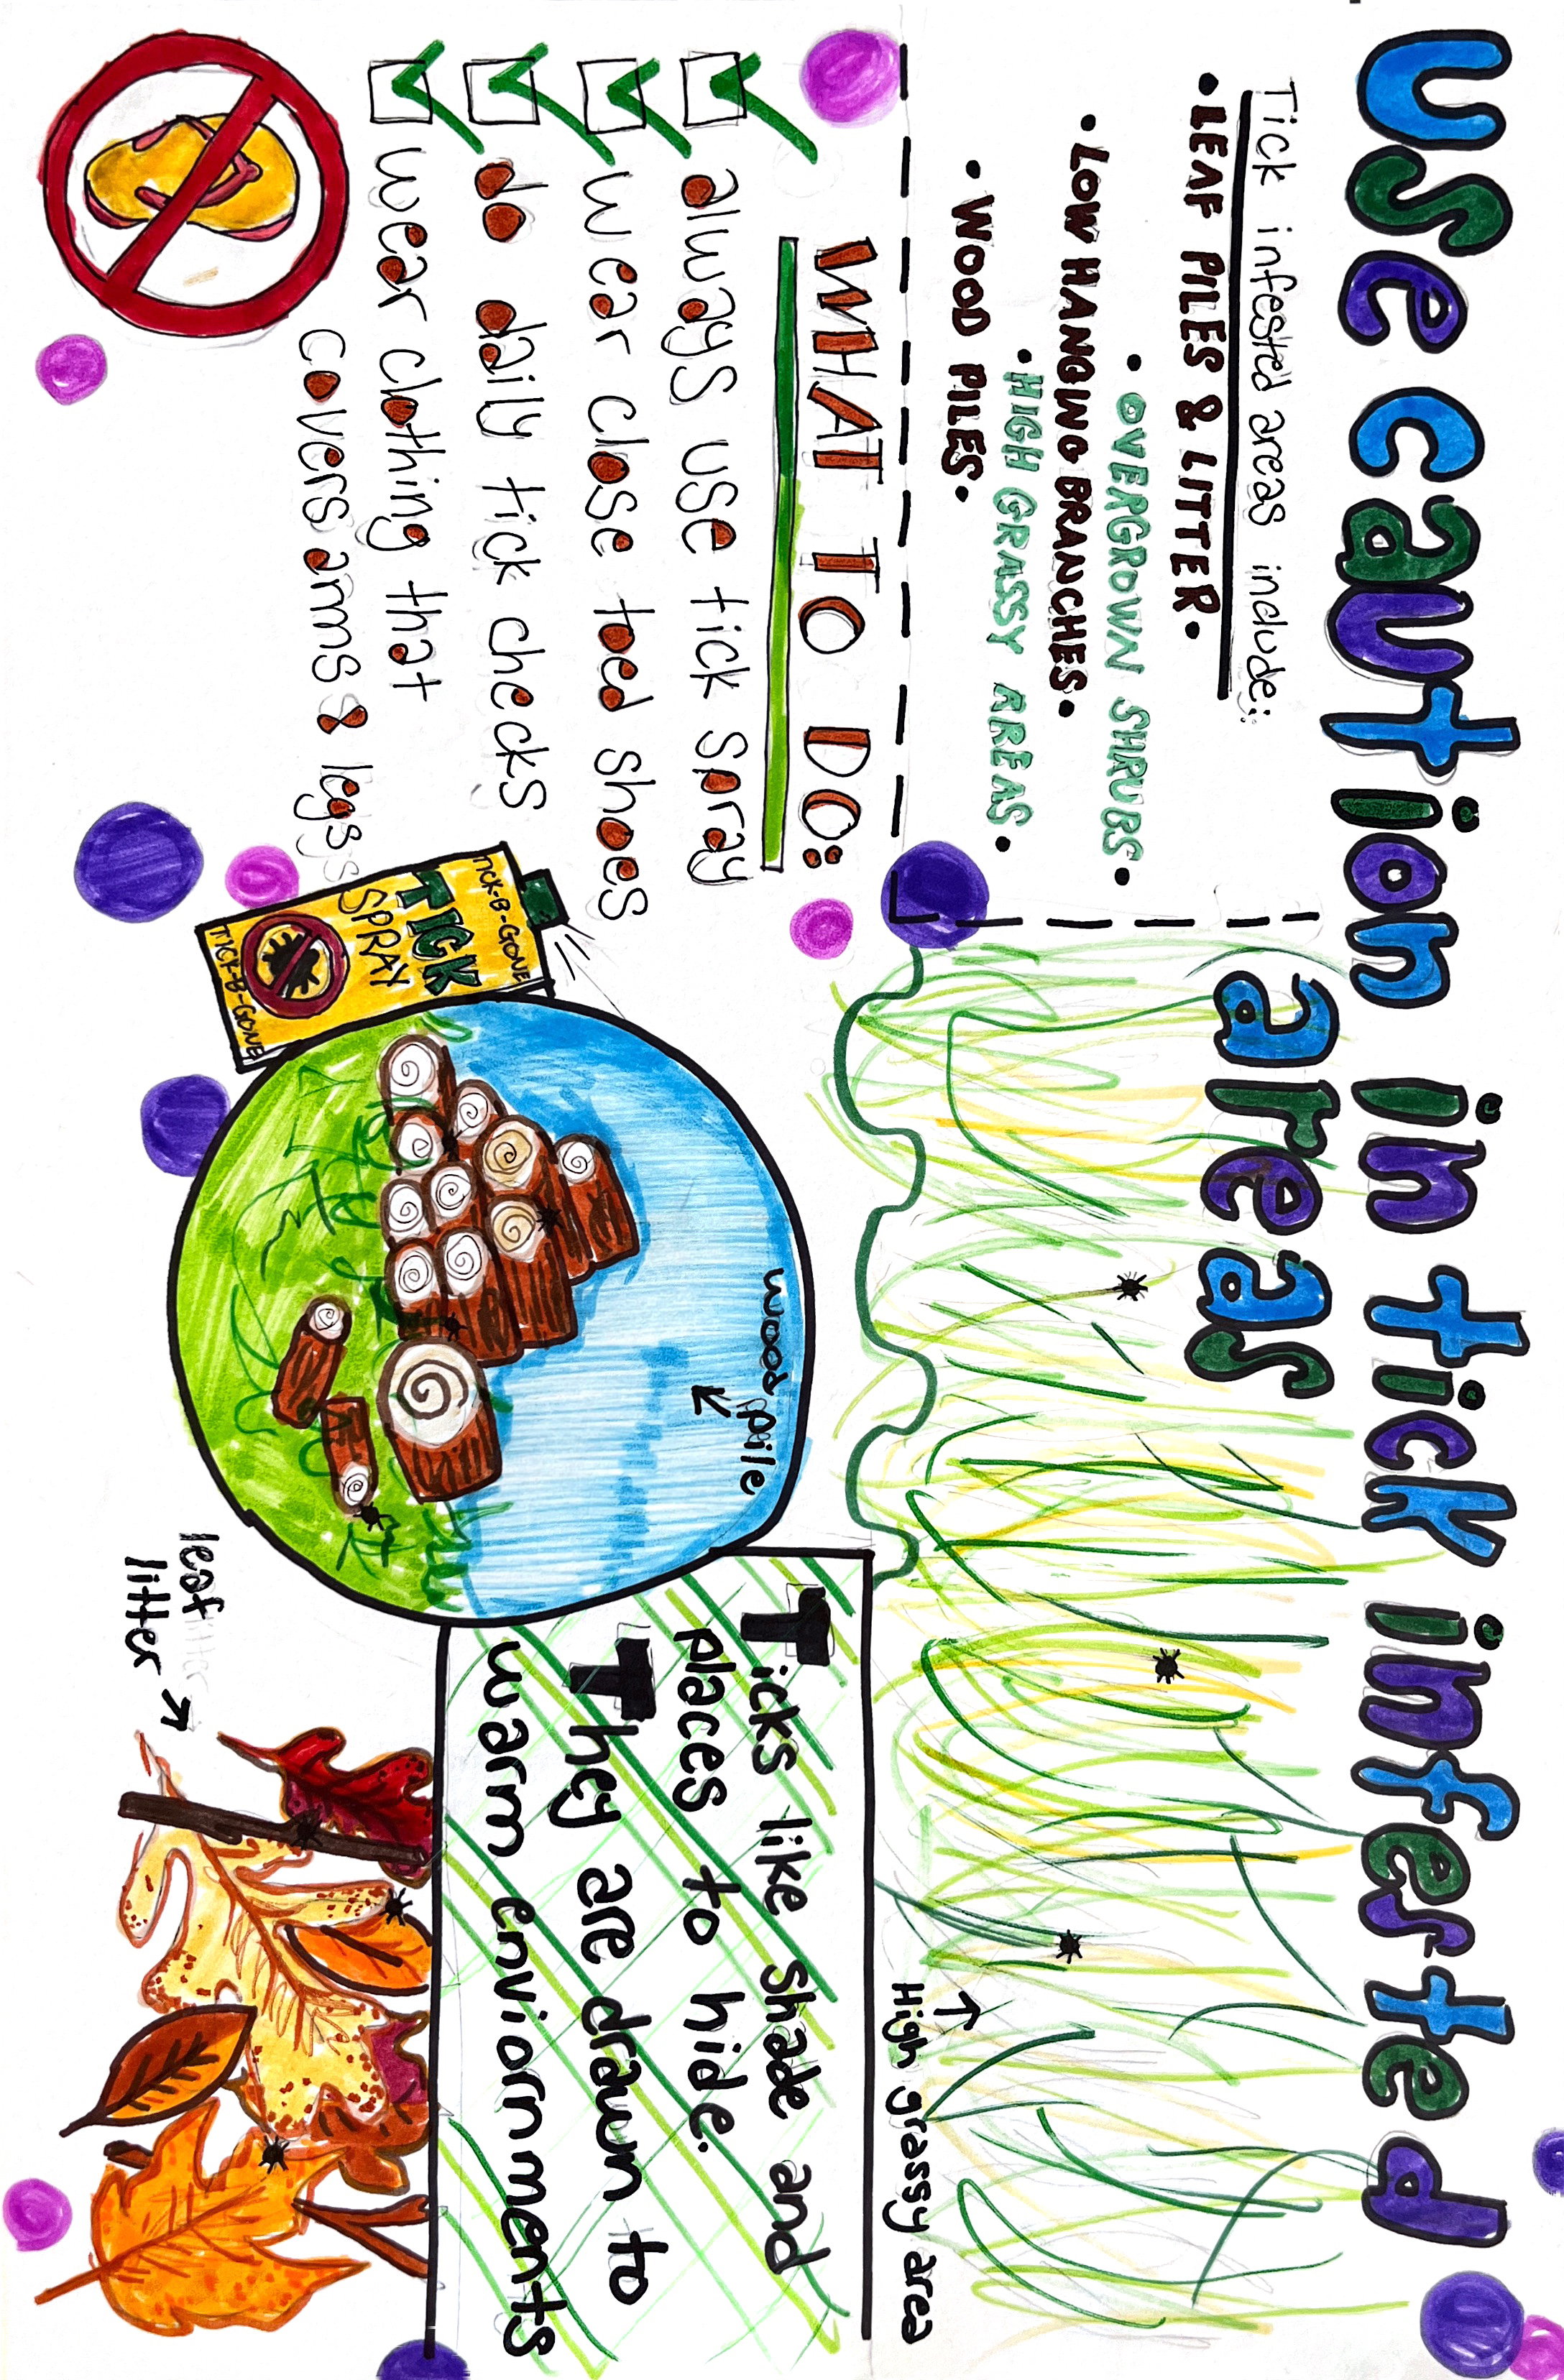 use caution in tick infested
areas
Tick infested areas include:
• LEAF PILES & LITTER •
• OVERGROWN SHRUBS •
• LOW HANGING BRANCHES •
• HIGH GRASSY AREAS •
• WOOD PILES •
WHAT TO DO:
always use tick spray
wear close toed shoes
do daily tick checks
wear clothing that
covers arms & legs
TICK-B-GONE
TICK
SPRAY
TICK-B-GONE
wood pile
High grassy area
Ticks like shade and
places to hide.
They are drawn to
warm enviornments
leaf
litter